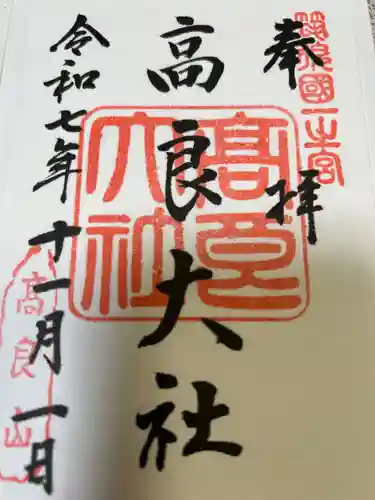 筑後國一之宮
奉拝
高良大社
高良大社
令和七年十一月一日
高良山